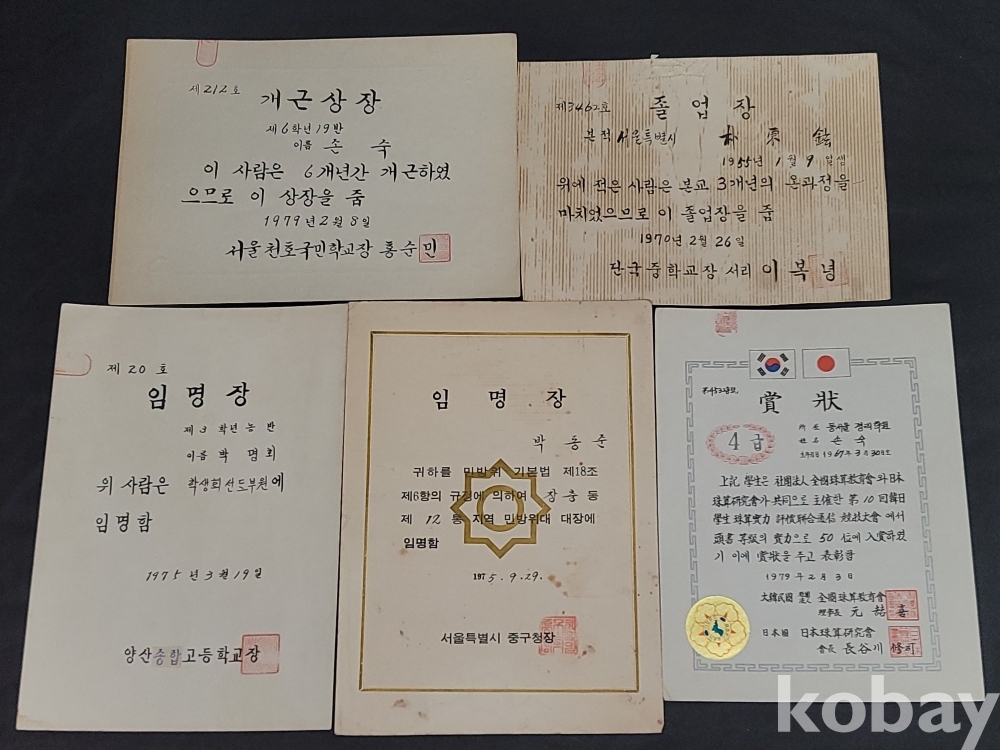 제212호
개근상장
제6학년19반
이름 손 숙
이 사람은 6개년간 개근하였
으므로 이 상장을 줌
1979년2월8일
서울천호국민학교장 홍순민
제3462호
졸 업 장
본적 서울특별시 朴東鉉
1955년 1월 9일생
위에 적은 사람은 본교 3개년의 온과정을
마치었으므로 이 졸업장을 줌
1970년 2월 26일
단국중학교장 서리 이복녕
제 20 호
임 명 장
제3학년농반
이름 박명회
위 사람은 학생회선도부원에
임명함
1975년3월19일
양산종합고등학교장
임 명 장
박 동 준
귀하를 민방위 기본법 제18조
제6항의 규정에 의하여 장충 동
제 12 통 지역 민방위대 대장에
임명함
1975.9.29.
서울특별시 중구청장
賞 狀
4급
姓名 손 숙
生年月日 1967年3月30日
上記 學生은 社團法人 全國珠算敎育會와 日本
珠算硏究會가 共同으로 主催한 第10回韓日
學生珠算實力 評價聯合通信 競技大會에서
頭書 等級의 實力으로 50位에 入賞하였
기 이에 賞狀을 주고 表彰함
1979年2月3日
大韓民國 社團法人 全國珠算敎育會
理事長 元喆喜
日本國 日本珠算硏究會
會長 長谷川修司
kobay